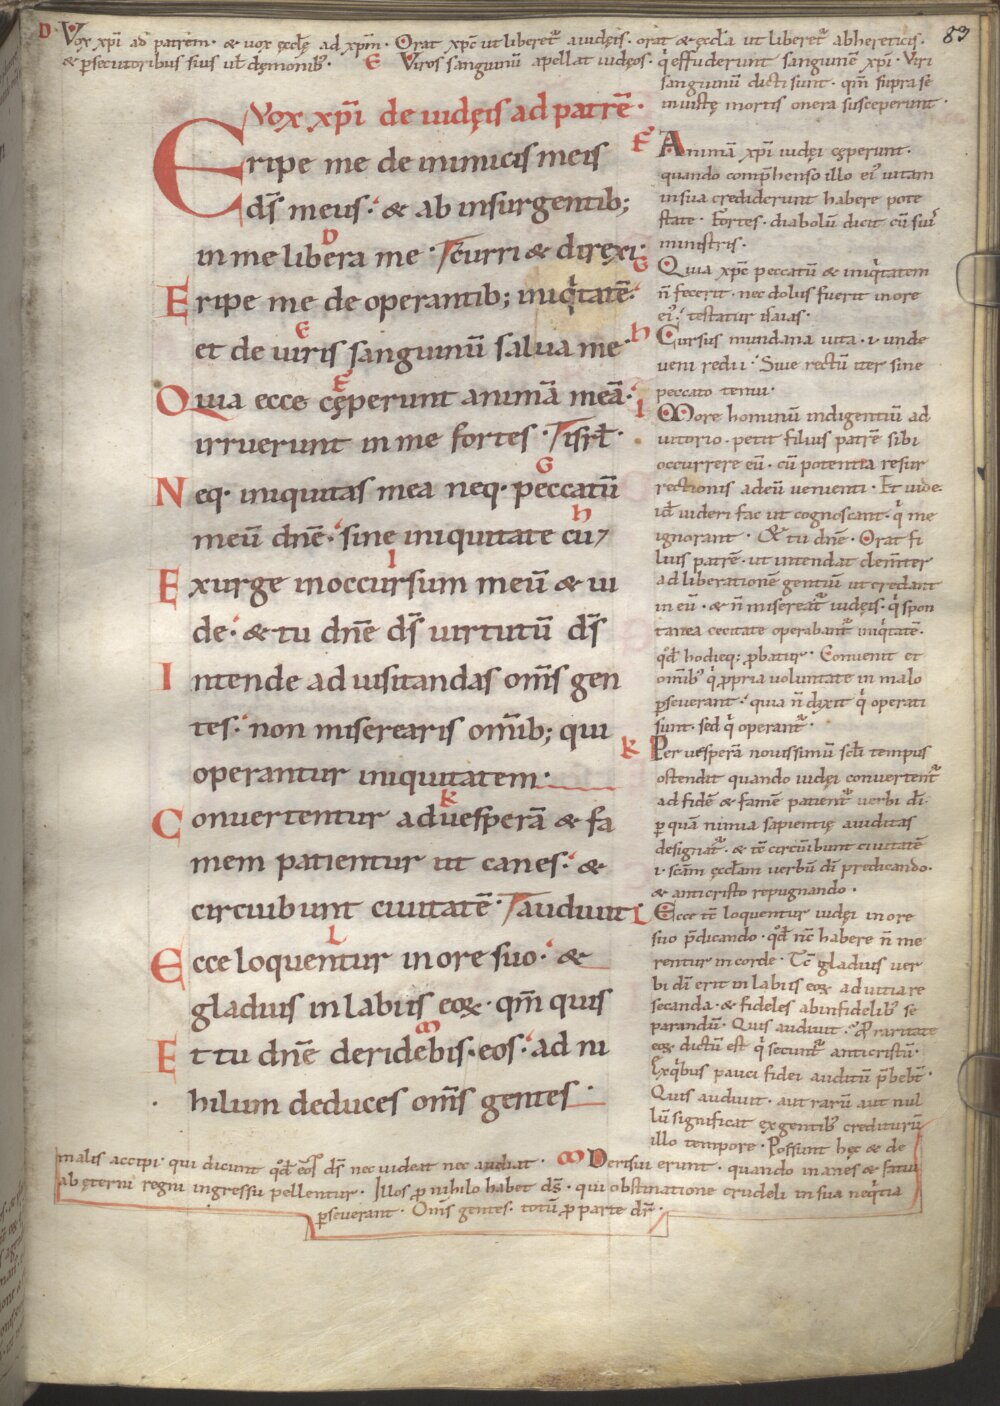 D Vox xp̄i ad patrem · & uox ęcclę ad xp̄m · Orat xp̄c ut liberet᷑ a iudęis · orat & ęccl̄a ut liberet᷑ ab hereticis · 83
& p̱secutoribus siuis ul̄ dęmonib᷒ · E Viros sanguinū apellat iudęos · q̇ effuderunt sanguinē xp̄i · Viri
sanguinū dicti sunt · qm̄ supra se
iniustę mortis onera susceperunt ·
Vox xp̄i de iudęis ad patrē ·
Eripe me de inimicis meis
ds̄ meus · & ab insurgentib;
in me libera me · scurri & direxi ·
Eripe me de operantib; iniq̇tatē ·
et de uiris sanguinū salua me
Quia ecce cęperunt animā meā ·
irruerunt in me fortes · isrł ·
Neq· iniquitas mea neq· peccatū
meū dn̄e · sine iniquitate cu
Exurge in occursum meū & ui
de · & tu dn̄e ds̄ uirtutū ds̄
Intende ad uisitandas om̄s gen
tes · non miserearis om̄ib; qui
operantur iniquitatem ·
Conuertentur ad uesperā & fa
mem patientur ut canes · &
circuibunt ciuitatē · audiuit
Ecce loquentur in ore suo · &
gladius in labiis eoꝝ · qm̄ quis
Et tu dn̄e deridebis · eos · ad ni
hilum deduces om̄s gentes ·
F Animā xp̄i iudęi cęperunt ·
quando comp̄henso illo ei᷒ uitam
in sua crediderunt habere pote
state · Fortes · diabolū dicit cū suis
ministris ·
G Quia xp̄c peccatū & iniq̇tatem
n̄ fecerit · nec dolus fuerit in ore
ei᷒ · testatur isaias ·
h Cursus mundana uita · i· unde
ueni redii · Siue rectū iter sine
peccato tenui ·
I More hominū indigentiū ad
iutorio · petit filius patrē sibi
occurrere eū · cū potentia resur
rectionis ad eū uenienti · Et uide ·
id̄ uideri fac ut cognoscant · q̇ me
ignorant · Et tu dn̄e · Orat fi
lius patrē · ut intendat clem̄ter
ad liberationē gentiū ut credant
in eū · & n̄ misereat᷑ iudęis · q̇ spon
tanea cecitate operabant᷑ iniq̇tatē ·
qd̄ hodieq; ꝓbatur · Conuenit et
om̄ib᷒ q̇ ꝓpria uoluntate in malo
p̱seuerant · quia n̄ dixit q̇ operati
sunt · sed q̇ operant᷑ ·
k Per uesperā nouissimū scl̄i tempus
ostendit quando iudęi conuertent᷑
ad fidē & famē patient᷑ uerbi dī ·
p̱ quā nimia sapientię auiditas
designat᷑ · & tc̄ circuibunt ciuitatē
i· scām ęcclam uerbū dī predicando ·
& anticristo repugnando ·
L Ecce tc̄ loquentur iudęi in ore
suo p̄dicando · qd̄ nc̄ habere n̄ me
rentur in corde · Tc̄ gladius uer
bi dī erit in labiis eoꝝ ad uitia re
secanda · & fideles ab infidelib᷒ se
parandū · Quis audiuit · raritate
eoꝝ dictū est q̇ secunt᷑ anticristū ·
Exq̇bus pauci fidei auditū p̄bebt̄ ·
Quis audiuit · aut rarū aut nul
lū significat ex gentib᷒ crediturū
illo tempore · Possunt hęc & de
malis accipi · qui dicunt qd̄ eos̄ ds̄ nec uideat nec audiat · M Derisui erunt · quando inanes & fatui
ab ęterni regni ingressu pellentur · Illos ꝓ nihilo habet ds̄ · qui obstinatione crudeli in sua neq̇tia
p̱seuerant · Om̄s gentes · totū ꝓ parte dr̄ ·